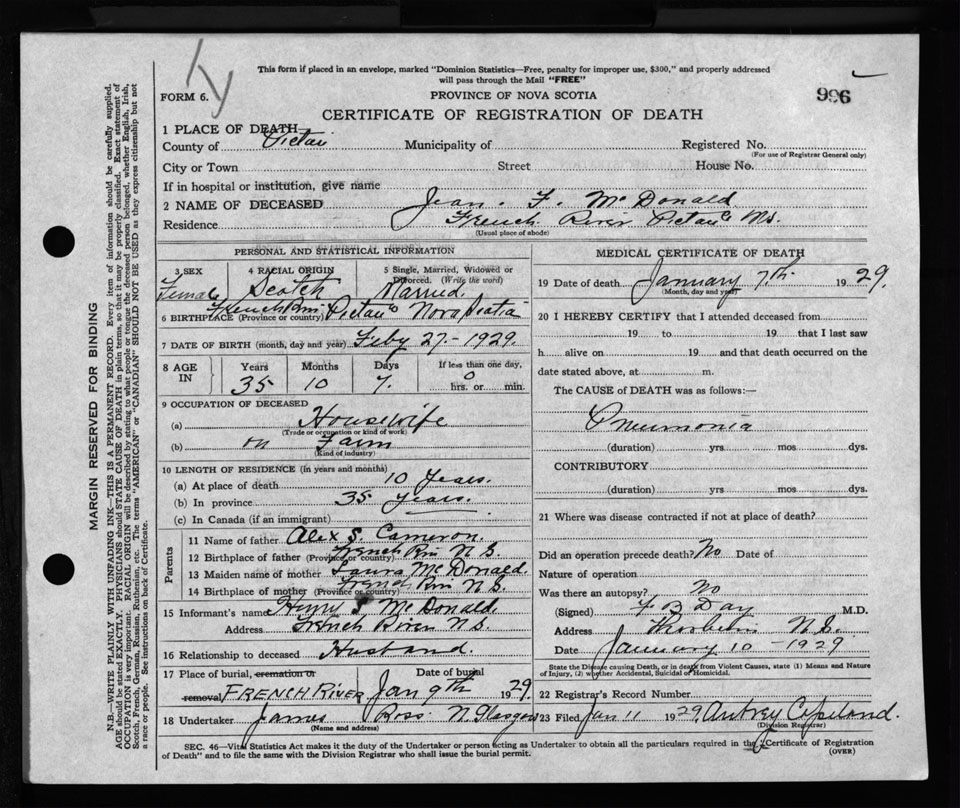 This form if placed in an envelope, marked "Dominion Statistics—Free, penalty for improper use, $300," and properly addressed
will pass through the Mail "FREE"
996
FORM 6.
PROVINCE OF NOVA SCOTIA
CERTIFICATE OF REGISTRATION OF DEATH
1 PLACE OF DEATH
County of Pictou Municipality of Registered No.
(For use of Registrar General only)
City or Town Street House No.
If in hospital or institution, give name
2 NAME OF DECEASED Jean. F. McDonald
Residence French River Pictou Co N.S.
(Usual place of abode)
PERSONAL AND STATISTICAL INFORMATION
3 SEX 4 RACIAL ORIGIN 5 Single, Married, Widowed or
Divorced. (Write the word)
Female Scotch Married.
6 BIRTHPLACE (Province or country) French River Pictou Co Nova Scotia
7 DATE OF BIRTH (month, day and year) Feby 27 - 1929
8 AGE IN Years Months Days If less than one day,
35 10 7. 0 hrs. or min.
9 OCCUPATION OF DECEASED
(a) Housewife
(Trade or occupation or kind of work)
(b) on Farm
(Kind of industry)
10 LENGTH OF RESIDENCE (In years and months)
(a) At place of death 10 Years.
(b) In province 35 years.
(c) In Canada (if an immigrant)
Parents
11 Name of father Alex S. Cameron.
12 Birthplace of father (Province or country) French River N.S.
13 Maiden name of mother Laura McDonald.
14 Birthplace of mother (Province or country) French River N.S.
15 Informant's name Henry S McDonald
Address French River N.S.
16 Relationship to deceased Husband.
17 Place of burial, cremation or Date of burial
removal FRENCH RIVER Jan 9th 1929.
18 Undertaker James Ross N. Glasgow
(Name and address)
MEDICAL CERTIFICATE OF DEATH
19 Date of death January 7th 1929.
(Month, day and year)
20 I HEREBY CERTIFY that I attended deceased from
19 to 19 that I last saw
h alive on 19 and that death occurred on the
date stated above, at m.
The CAUSE of DEATH was as follows:—
Pneumonia
(duration) yrs mos dys.
CONTRIBUTORY
(duration) yrs mos dys.
21 Where was disease contracted if not at place of death?
Did an operation precede death? No Date of
Nature of operation
Was there an autopsy? No
(Signed) F B Day M.D.
Address Thorburn N.S.
Date January 10 - 1929
State the Disease causing Death, or in death from Violent Causes, state (1) Means and Nature
of Injury, (2) whether Accidental, Suicidal or Homicidal.
22 Registrar's Record Number
23 Filed Jan 11 1929 Autrey Copeland.
(Division Registrar)
SEC. 46—Vital Statistics Act makes it the duty of the Undertaker or person acting as Undertaker to obtain all the particulars required in the Certificate of Registration
of Death" and to file the same with the Division Registrar who shall issue the burial permit.
(OVER)
MARGIN RESERVED FOR BINDING
N.B.—WRITE PLAINLY WITH UNFADING INK—THIS IS A PERMANENT RECORD. Every item of information should be carefully supplied.
AGE should be stated EXACTLY. PHYSICIANS should STATE CAUSE OF DEATH in plain terms, so that it may be properly classified. Exact statement of
OCCUPATION is very important. RACIAL ORIGIN will be described by stating to what people or tongue the deceased person belonged, whether English, Irish,
Scotch, French, German, Russian, Ruthenian, etc. The terms "AMERICAN" or "CANADIAN" SHOULD NOT BE USED as they express citizenship but not
a race or people. See instructions on back of Certificate.